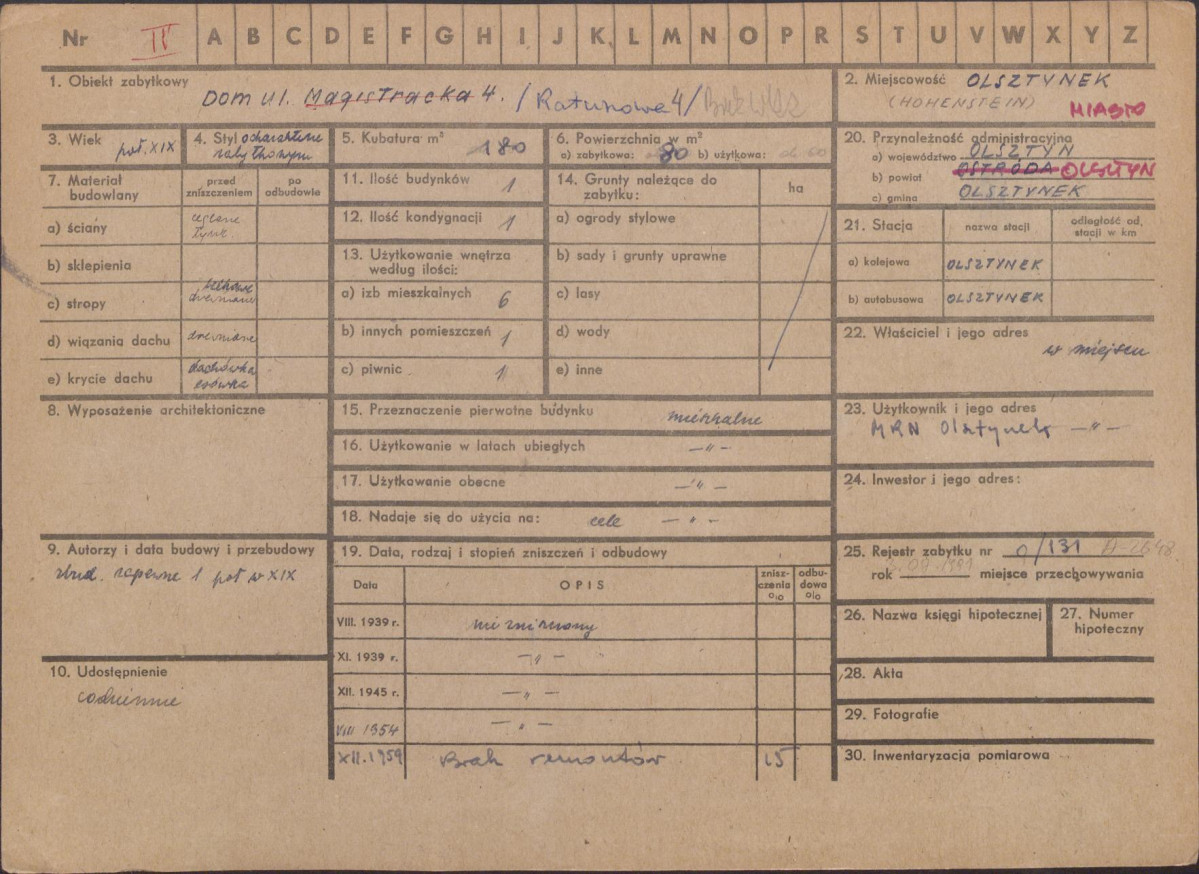 Nr IV A B C D E F G H I J K L M N O P R S T U V W X Y Z
1. Obiekt zabytkowy
Dom ul. Magistracka 4. /Ratuszowa 4/
2. Miejscowość OLSZTYNEK
(HOHENSTEIN)
MIASTO
3. Wiek
poł. XIX
4. Styl o charakterze
zabytkowym
5. Kubatura m³
180
6. Powierzchnia w m²
a) zabytkowa: 80 b) użytkowa: ok 60
20. Przynależność administracyjna
a) województwo OLSZTYN
b) powiat OSTRÓDA OLSZTYN
c) gmina OLSZTYNEK
7. Materiał
budowlany
przed
zniszczeniem
po
odbudowie
a) ściany
ceglane
tynk.
b) sklepienia
c) stropy
belkowe
drewniane
d) wiązania dachu drewniane
e) krycie dachu
dachówka
esówka
11. Ilość budynków 1
12. Ilość kondygnacji 1
13. Użytkowanie wnętrza
według ilości:
a) izb mieszkalnych 6
b) innych pomieszczeń 1
c) piwnic 1
14. Grunty należące do
zabytku:
ha
a) ogrody stylowe
b) sady i grunty uprawne
c) lasy
d) wody
e) inne
21. Stacja
nazwa stacji
odległość od.
stacji w km
a) kolejowa OLSZTYNEK
b) autobusowa OLSZTYNEK
22. Właściciel i jego adres
w miejscu
8. Wyposażenie architektoniczne
15. Przeznaczenie pierwotne budynku mieszkalne
16. Użytkowanie w latach ubiegłych —"—
17. Użytkowanie obecne —"—
18. Nadaje się do użycia na: cele —"—
23. Użytkownik i jego adres
MRN Olsztynek —"—
24. Inwestor i jego adres:
9. Autorzy i data budowy i przebudowy
zbud. zapewne 1 poł w XIX
10. Udostępnienie
codziennie
19. Data, rodzaj i stopień zniszczeń i odbudowy
Data
OPIS
znisz-
czenia
o/o
odbu-
dowa
o/o
VIII. 1939 r. nie zniszczony
XI. 1939 r. —"—
XII. 1945 r. —"—
VIII 1954 —"—
XII. 1959 Brak remontów 15
25. Rejestr zabytku nr 0/131 A-2648
rok miejsce przechowywania
26. Nazwa księgi hipotecznej
27. Numer
hipoteczny
28. Akta
29. Fotografie
30. Inwentaryzacja pomiarowa